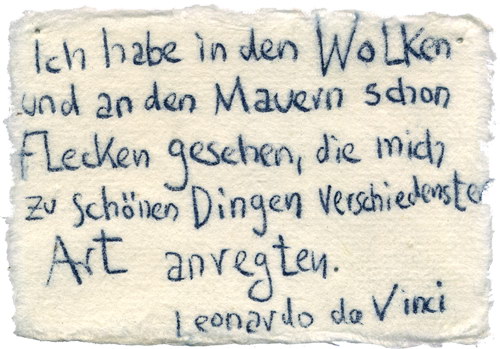 Ich habe in den Wolken
und an den Mauern schon
Flecken gesehen, die mich
zu schönen Dingen verschiedenster
Art anregten.
Leonardo da Vinci